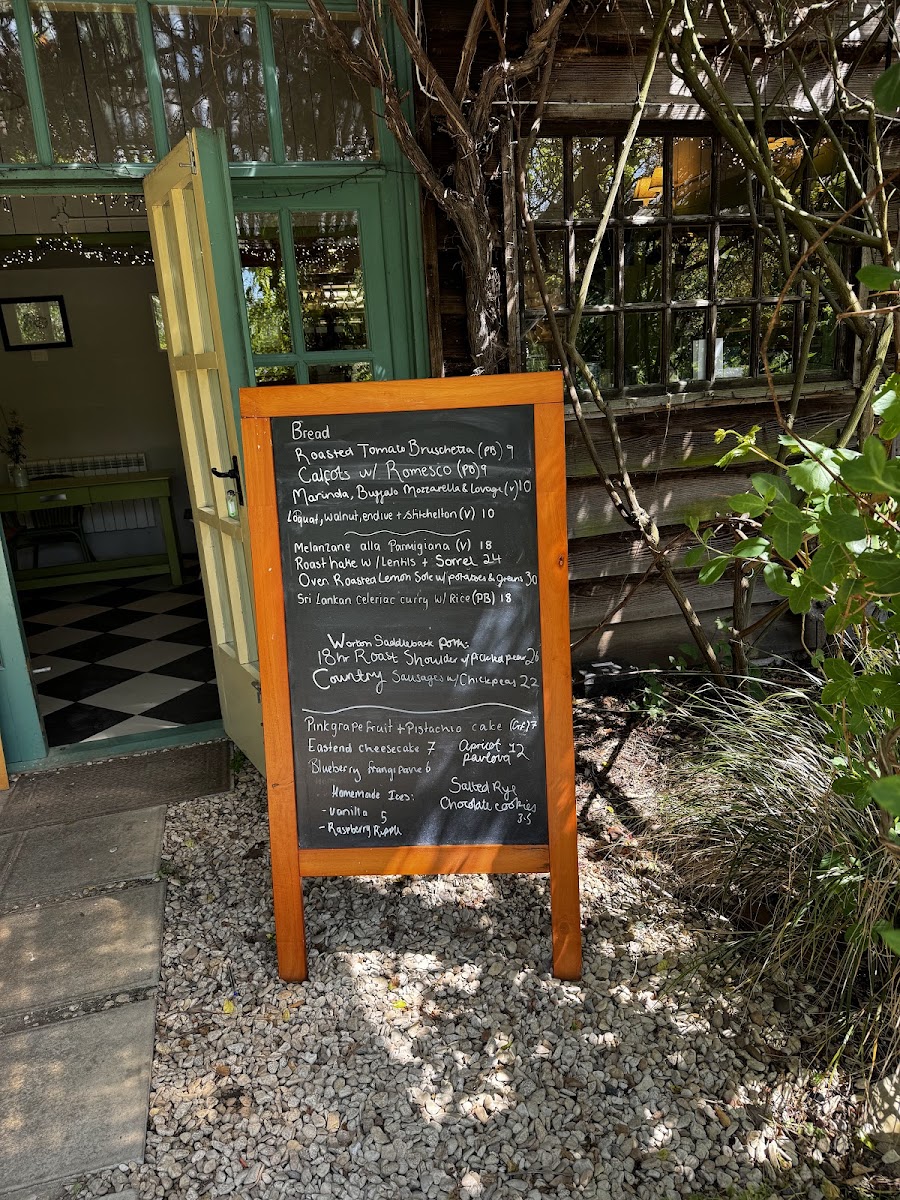 Bread
Roasted Tomato Bruschetta (PB) 9
Calçots w/ Romesco (PB) 9
Marinda, Buffalo Mozzarella & Lovage (v) 10
Loquat, walnut, endive + Stichelton (V) 10
Melanzane alla Parmigiana (V) 18
Roast hake w/ Lentils + Sorrel 24
Oven Roasted Lemon Sole w/ potatoes & greens 30
Sri Lankan Celeriac curry w/ Rice (PB) 18
Worton Saddleback Pork:
18hr Roast Shoulder w/ pickled pear 26
Country Sausages w/ Chickpeas 22
Pinkgrapefruit + Pistachio cake (GF) 7
Eastend cheesecake 7
Blueberry frangipane 6
Apricot 12
pavlova
Homemade Ices:
- Vanilla 5
- Raspberry Ripple
Salted Rye
Chocolate cookies
3.5